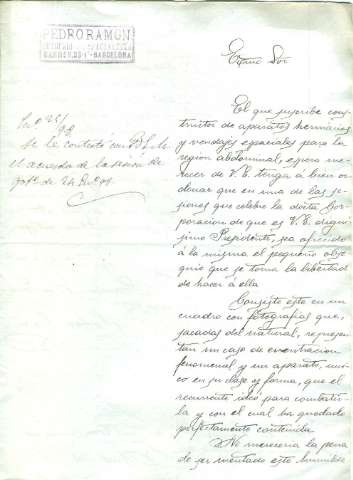 PEDRO RAMON
CARMEN, 38-1º-BARCELONA
Exmo Sor
El que suscribe constructor de aparatos herniarios
y vendajes especiales para la
region abdominal, espera merecer
de V. E. tenga á bien ordenar
que en una de las sesiones
que celebre la docta Corporacion
de que es V. E. dignisimo
Presidente, sea ofrecido
á la misma el pequeño obsequio
que se toma la libertad
de hacer á ella
Consiste este en un
cuadro con fotografias que,
sacadas del natural, representan
un caso de eventracion
fenomenal y un aparato, unico
en su clase y forma, que el
recurrente ideó para combatirla
y con el cual ha quedado
perfectamente contenida.
No mereceria la pena
de ser mentado este humilde
Se le contestó con B. L. M.
el acuerdo de la sesión de